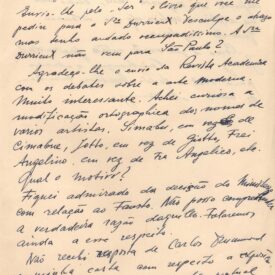 Envio-lhe pelo the o livro que você me
pediu para o Snr Burricut Desculpe o atrazo
mas tenho andado ocupadissimo. A Snr
não vem para São Paulo?
Agradeço-lhe o envio da Revista Academica
com os debates sobre a arte moderna.
Muito interessante. Achei curiosa a
modificação orthographica dos nomes de
varios artistas. Simabue, em vez de
Cimabue, Jotto, em vez de Giotto, Frei
Angelino, em vez de Fra Angelico, etc.
Qual o motivo?
Fiquei admirado da decisão do Ministro
com relação ao Fausto. Não posso comprehender
a verdadeira razão daquillo. Falaremos
ainda a esse respeito.
Não recebi resposta de Carlos
minha carta com respeito a